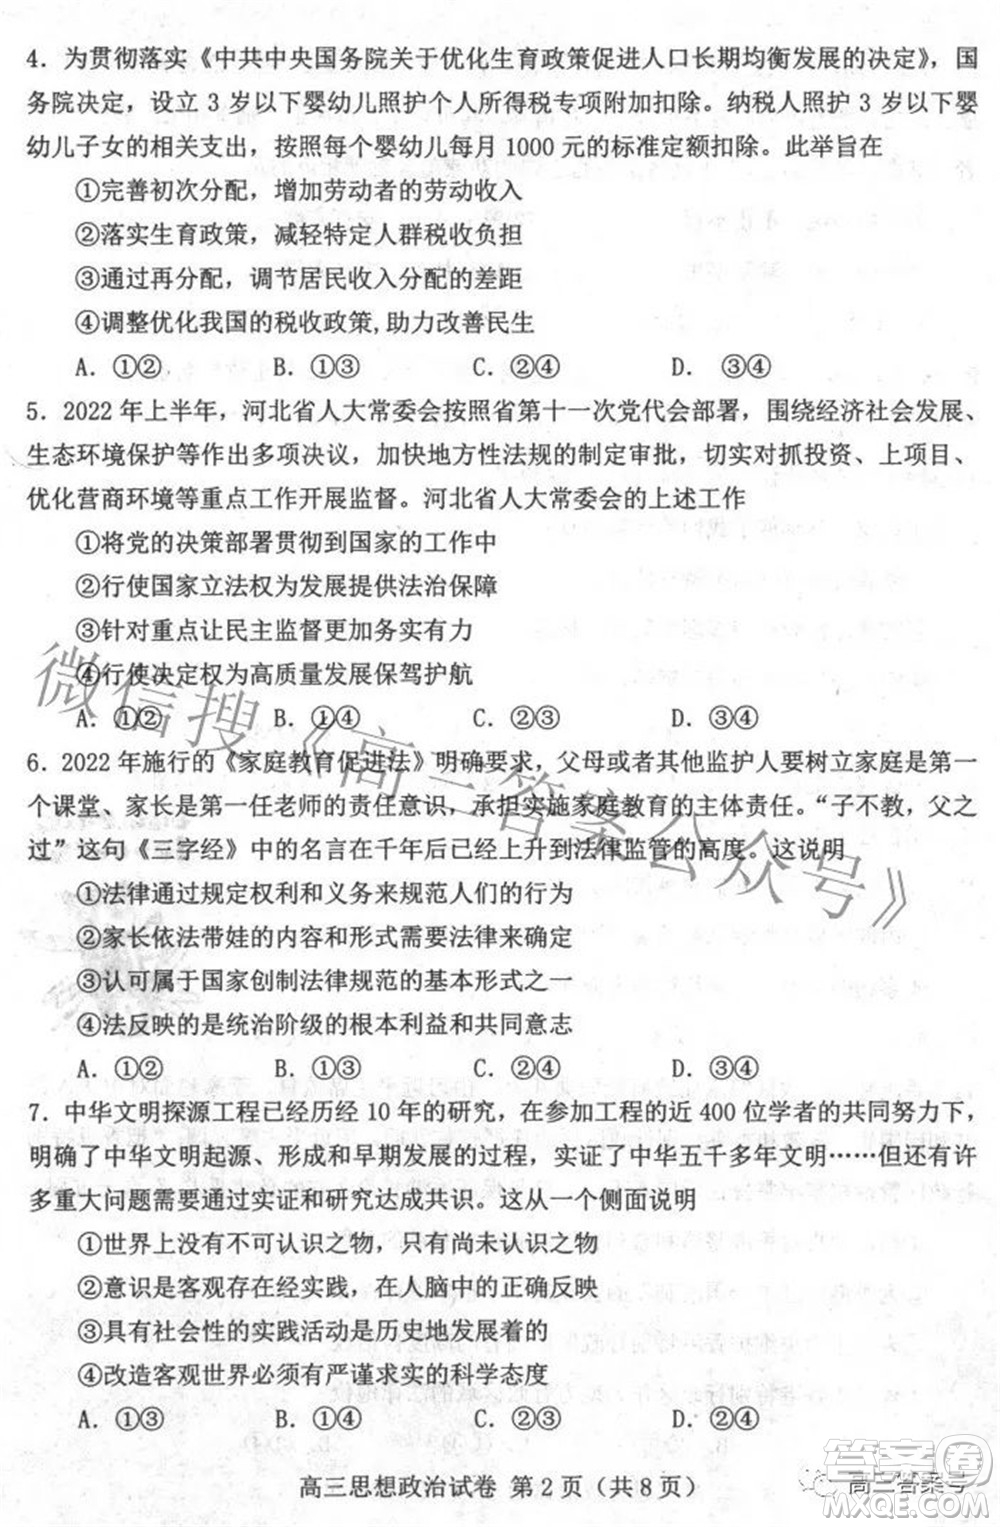 4．为贯彻落实《中共中央国务院关于优化生育政策促进人口长期均衡发展的决定》，国
务院决定，设立 3 岁以下婴幼儿照护个人所得税专项附加扣除。纳税人照护 3 岁以下婴
幼儿子女的相关支出，按照每个婴幼儿每月 1000 元的标准定额扣除。此举旨在
①完善初次分配，增加劳动者的劳动收入
②落实生育政策，减轻特定人群税收负担
③通过再分配，调节居民收入分配的差距
④调整优化我国的税收政策,助力改善民生
A．①② B．①③ C．②④ D． ③④
5．2022 年上半年，河北省人大常委会按照省第十一次党代会部署，围绕经济社会发展、
生态环境保护等作出多项决议，加快地方性法规的制定审批，切实对抓投资、上项目、
优化营商环境等重点工作开展监督。河北省人大常委会的上述工作
①将党的决策部署贯彻到国家的工作中
②行使国家立法权为发展提供法治保障
③针对重点让民主监督更加务实有力
④行使决定权为高质量发展保驾护航
A．①② B．①④ C．②③ D．③④
6．2022 年施行的《家庭教育促进法》明确要求，父母或者其他监护人要树立家庭是第一
个课堂、家长是第一任老师的责任意识，承担实施家庭教育的主体责任。“子不教，父之
过”这句《三字经》中的名言在千年后已经上升到法律监管的高度。这说明
①法律通过规定权利和义务来规范人们的行为
②家长依法带娃的内容和形式需要法律来确定
③认可属于国家创制法律规范的基本形式之一
④法反映的是统治阶级的根本利益和共同意志
A．①② B．①③ C．②④ D．③④
7．中华文明探源工程已经历经 10 年的研究，在参加工程的近 400 位学者的共同努力下，
明确了中华文明起源、形成和早期发展的过程，实证了中华五千多年文明……但还有许
多重大问题需要通过实证和研究达成共识。这从一个侧面说明
①世界上没有不可认识之物，只有尚未认识之物
②意识是客观存在经实践，在人脑中的正确反映
③具有社会性的实践活动是历史地发展着的
④改造客观世界必须有严谨求实的科学态度
A．①③ B．①④ C．②③ D．②④
高三思想政治试卷 第 2 页（共 8 页）
微信搜《高三答案公众号》
高三答案号
答案圈
MXQE.COM